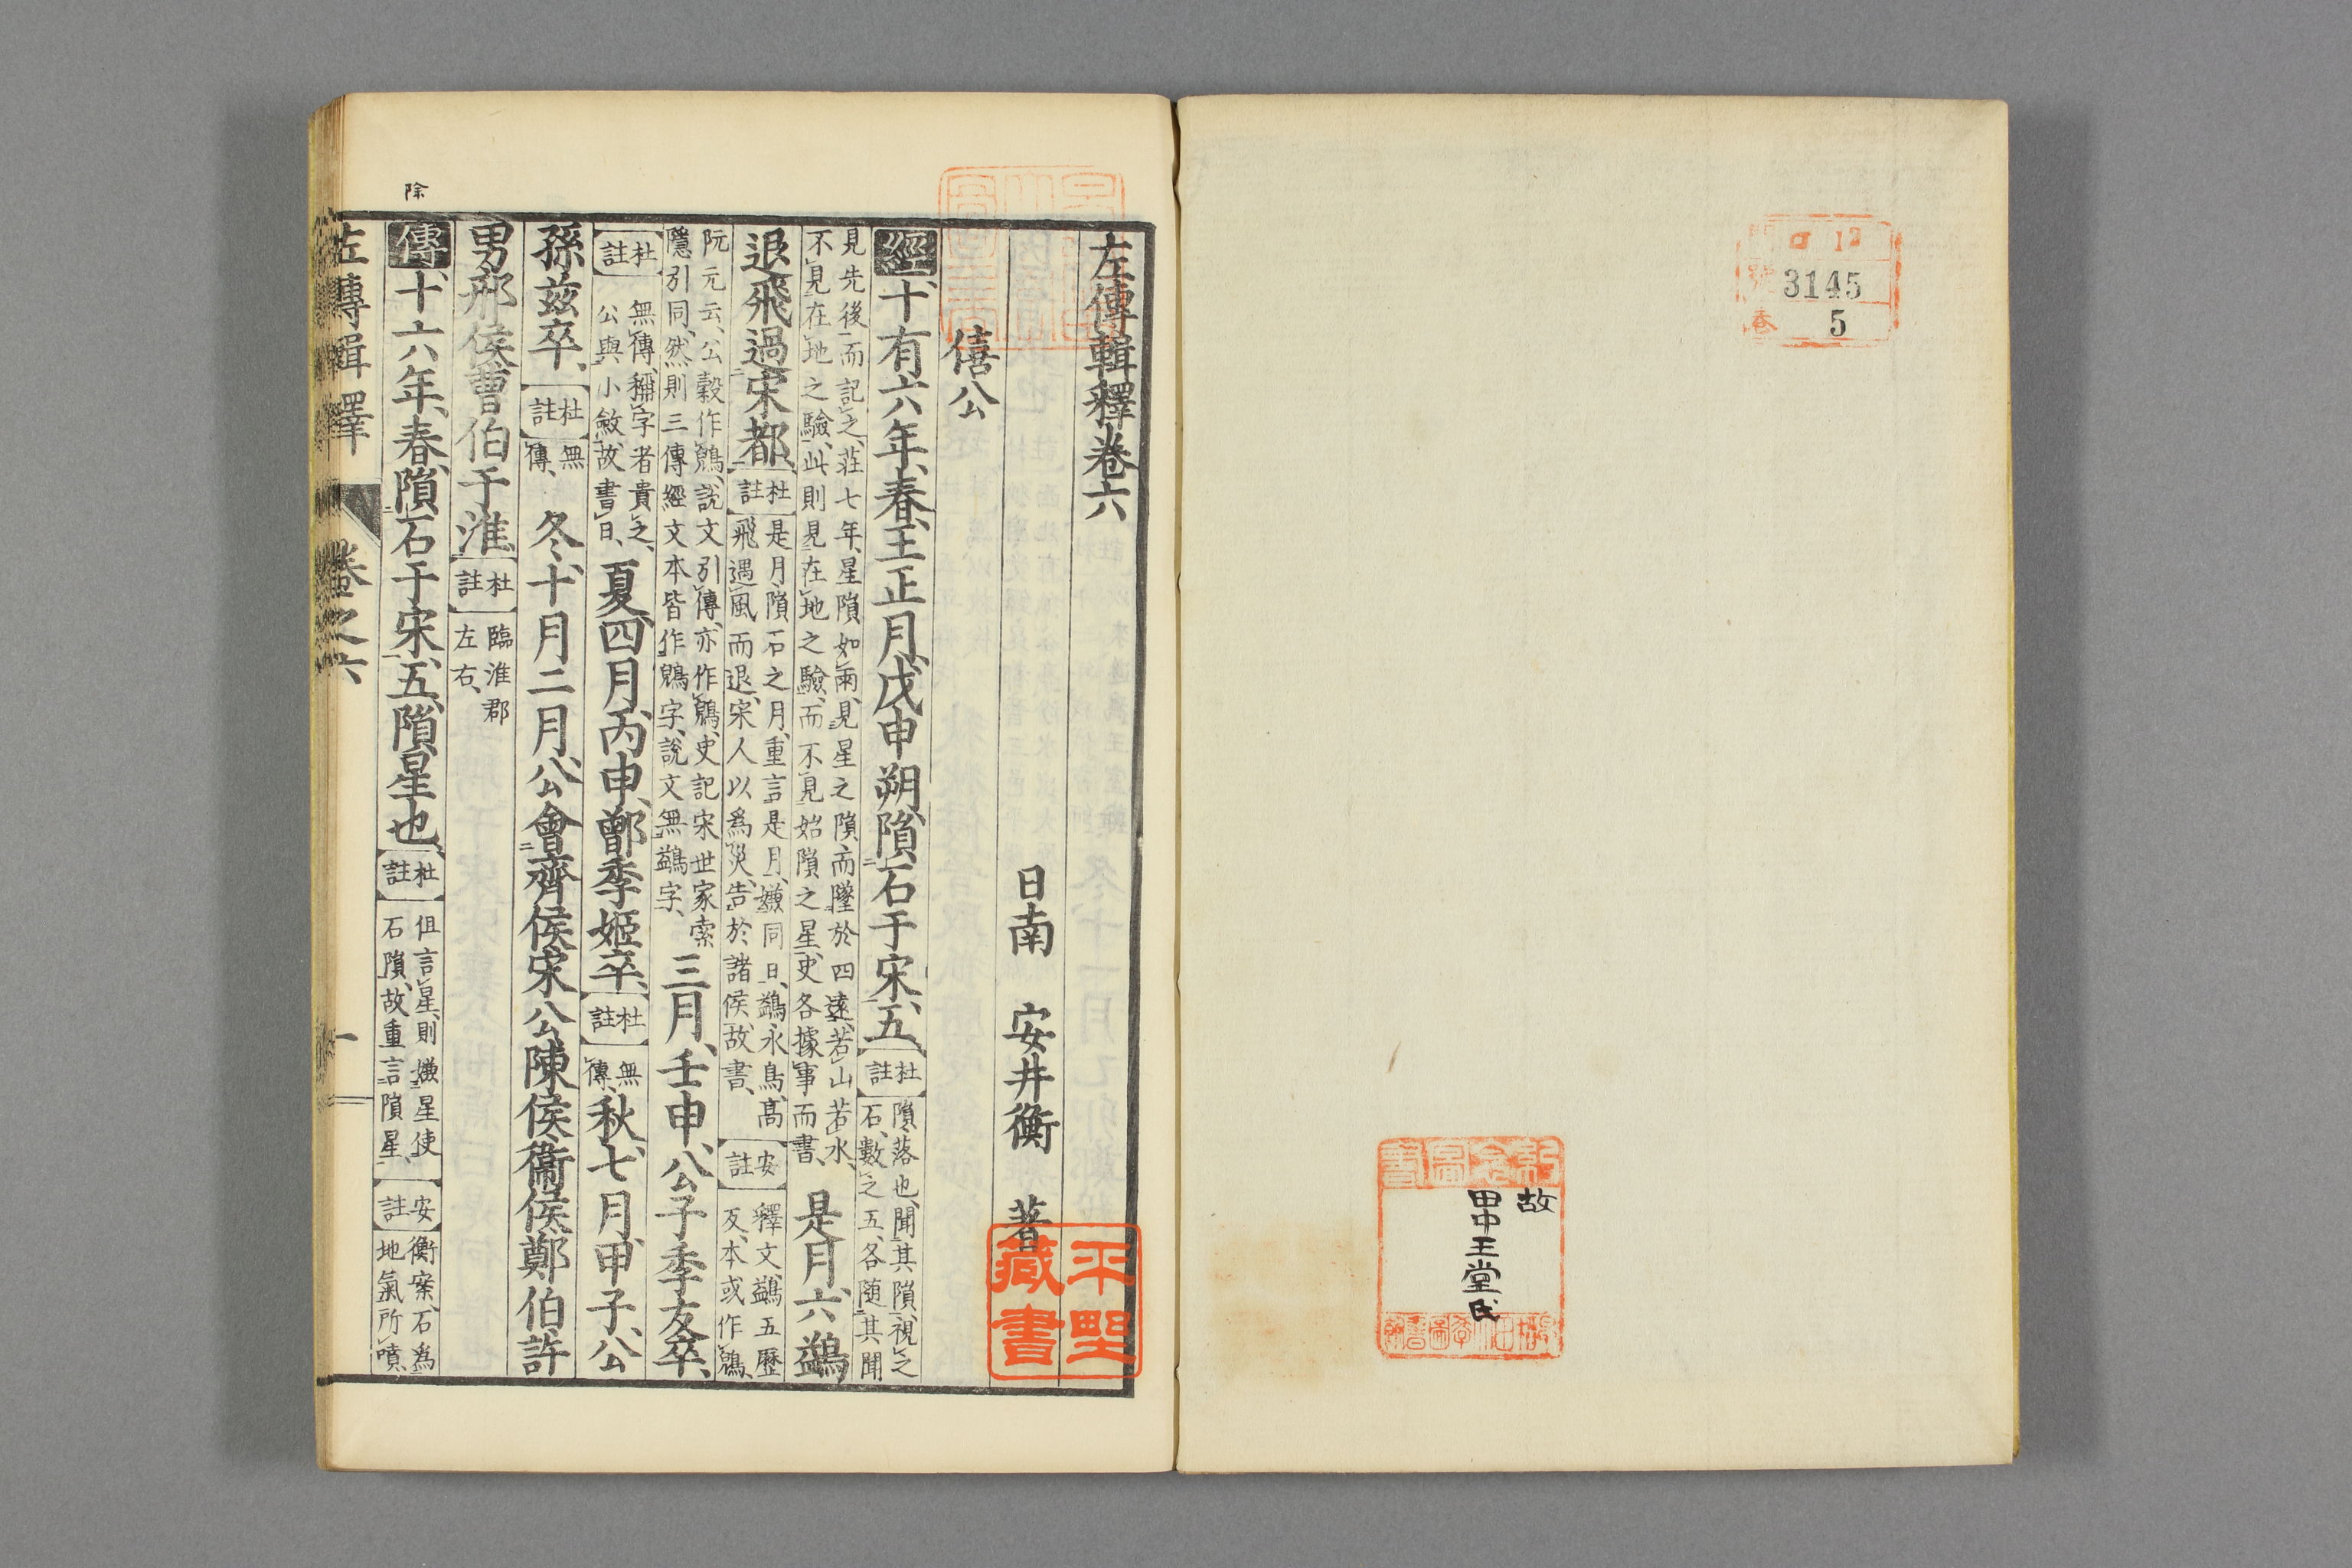 門 ロ12
號 3145
卷 5
故
田中王堂氏
左傳輯釋卷六
日南 安井衡 著
平野藏書
僖公
經十有六年、春、王正月、戊申朔、隕石于宋、五、
杜註
隕、落也、聞其隕、視之
石、數之五、各隨其聞
見先後而記之、莊七年、星隕如雨、見星之隕而墜於四遠、若山若水、
不見在地之驗、此則見在地之驗、而不見始隕之星、史各據事而書、
是月、六鷁
退飛過宋都、
杜註
是月、隕石之月、重言是月、嫌同日、鷁、水鳥、高
飛遇風而退、宋人以爲災、告於諸侯、故書、
安註
釋文、鷁、五歷
反、本或作鶂、
阮元云、公穀作鶂、說文引傳、亦作鶂、史記宋世家索
隱引同、然則三傳經文本皆作鶂字、說文無鷁字、
三月、壬申、公子季友卒、
杜註
無傳、稱字者貴之、
公與小斂、故書日、
夏、四月、丙申、鄫季姬卒、
杜註
無
傳、
秋、七月、甲子、公
孫茲卒、
杜註
無
傳、
冬、十月二月、公會齊侯宋公陳侯衞侯鄭伯許
男邢侯曹伯于淮、
杜註
臨淮郡
左右、
除
傳十六年、春、隕石于宋、五、隕星也、
杜註
但言星、則嫌星使
石隕、故重言隕星、
安註
衡案、石爲
地氣所噴、
左傳輯釋 卷之六 一